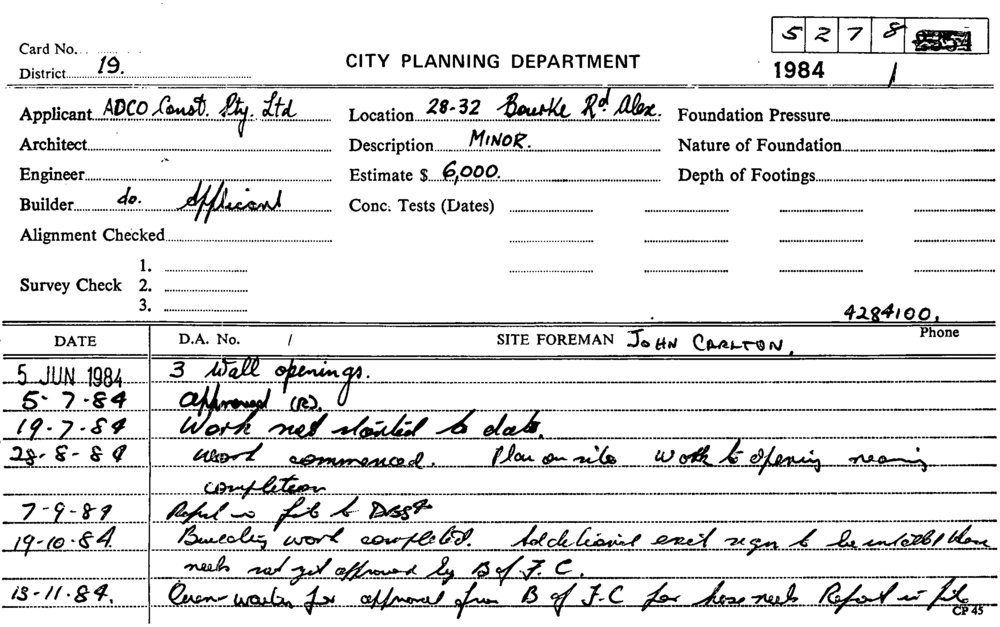 5 2 7 8
Card No.
District 19.
CITY PLANNING DEPARTMENT
1984 /
Applicant ADCO Const. Pty. Ltd
Location 28-32 Bourke Rd. Alex.
Foundation Pressure
Architect
Description MINOR.
Nature of Foundation
Engineer
Estimate $ 6,000.
Depth of Footings
Builder do. Applicant
Conc. Tests (Dates)
Alignment Checked
1.
Survey Check 2.
3.
4284100.
DATE D.A. No. / SITE FOREMAN JOHN CARLTON. Phone
5 JUN 1984 3 Wall openings.
5-7-84 approved (R).
19-7-84 Work not started to date.
28-8-84 Work commenced. Plan on site work to opening nearing
completion
7-9-84 Report in file to
19-10-84. Building work completed. Additional exit sign to be installed
not yet approved by B of F.C.
13-11-84. for approval from B of F.C for hose reels Report in file
CP 45